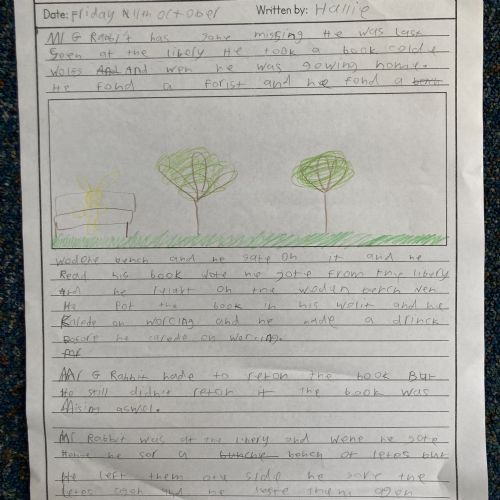 Date: Friday 11th october Written by: Hallie
Mr G Rabbit has gone missing He was last
Seen at the libely He took a book colde
Woles And And wen he was gowing home.
He fond a forist and he fond a bench
Wodone bench and he sate on it and he
Read his book wote he gote from the libely
And he on the woden bench wen
He Pot the book in his and he
on worcing and he made a drinck
Before he carede on worcing.
Mr G Rabbit hade to reton the book But
He still didn't reton it the book was
Mising aswel.
Mr Rabbit was at the libery and wene he gote
Home he sor a bunche bench of letos but
He left them one side he sore the
letos agen and he them agen